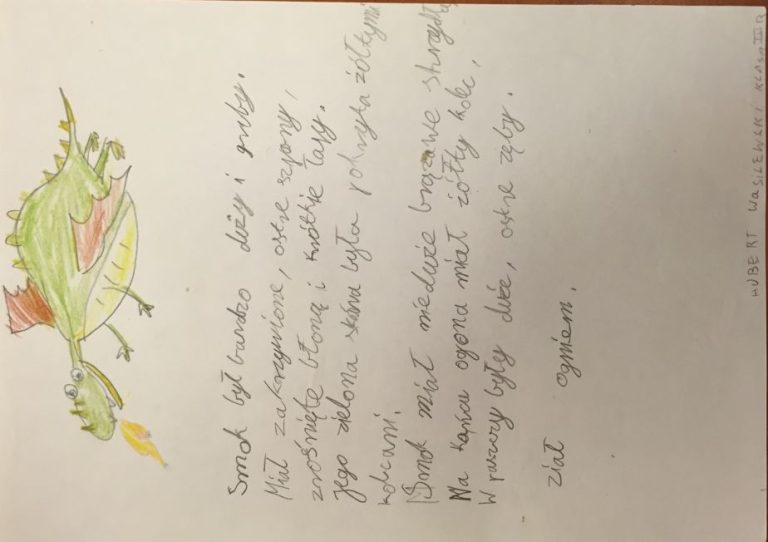 Smok był bardzo duży i gruby.
Miał zakrzywione, ostre szpony,
zrośnięte błoną i krótkie łapy.
Jego zielona skóra była pokryta żółtymi
kolcami.
Smok miał nieduże brązowe skrzydła
Na końcu ogona miał żółty kolec,
W paszczy były duże, ostre zęby.
Ział ogniem.
HUBERT WASILEWSKI KLASA III B